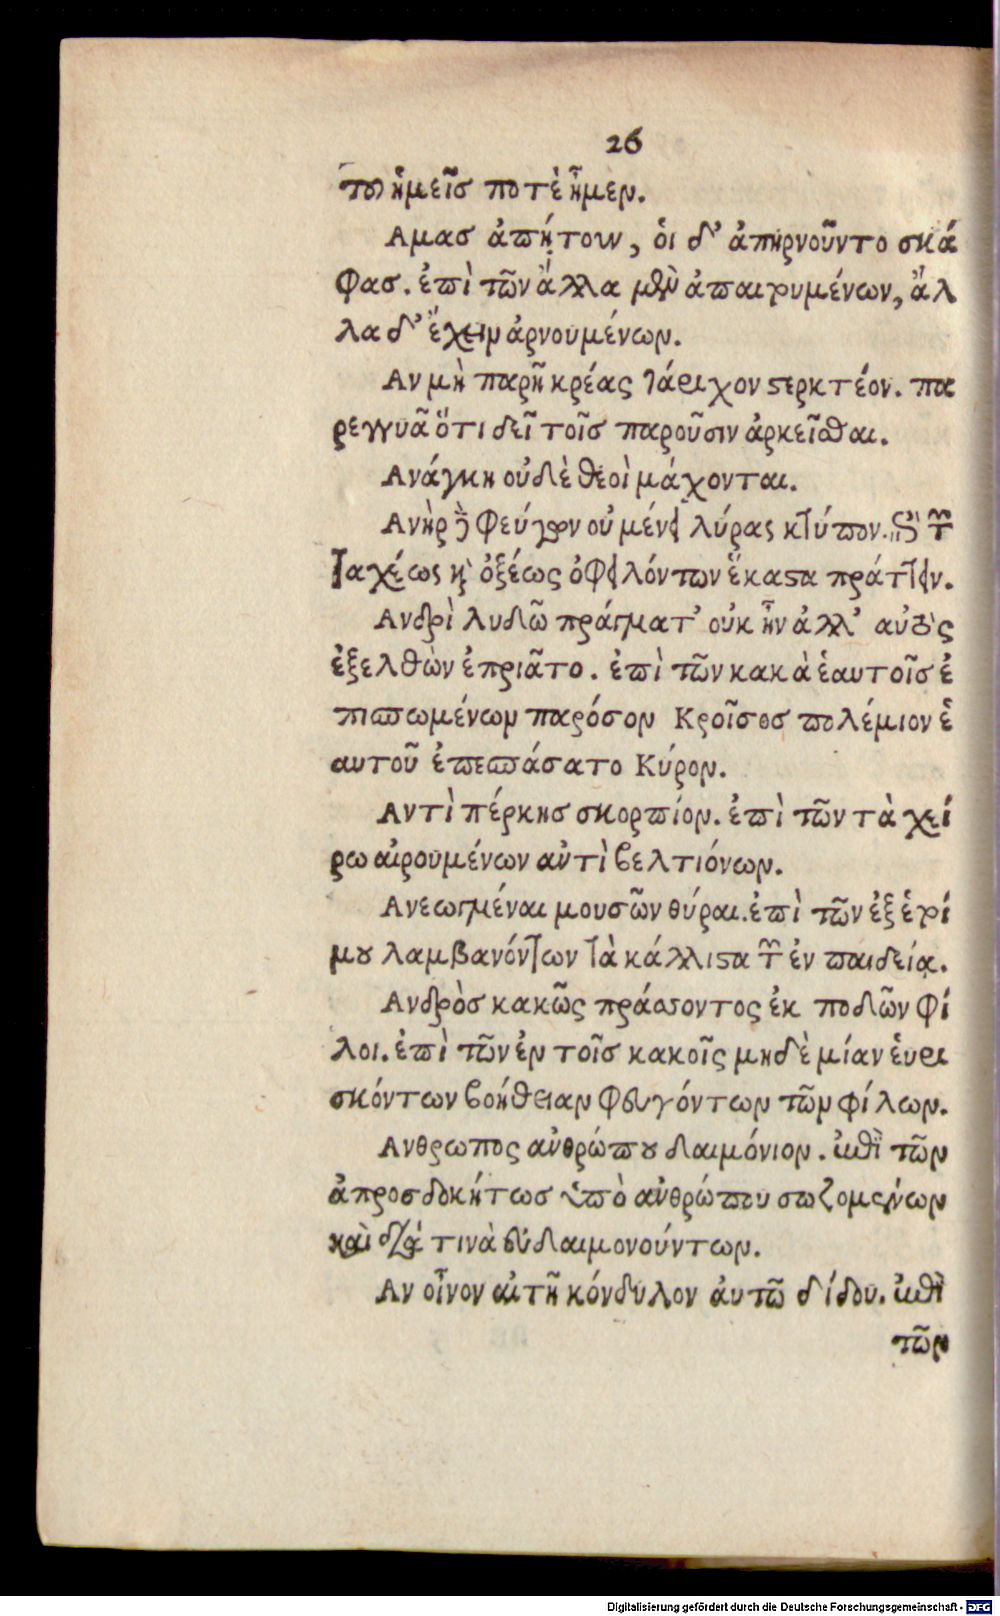 26
τοι ἡμεῖσ ποτὲ ἦμεν.
Αμασ ἀπῄτουν, ὁι δ’ ἀπηρνοῦντο σκά
φασ. ἐπὶ τῶν ἄλλα μὲν ἀπαιτουμένων, ἄλ
λα δ’ ἔχειν ἀρνουμένων.
Αν μὴ παρῆ κρέας τάριχον στερκτέον. πα
ρεγγυᾶ ὅτι δεῖ τοῖσ παροῦσιν ἀρκεῖσθαι.
Ανάγκη οὐδὲ θεοὶ μάχονται.
Ανὴρ ὁ φεύγων οὐ μένει λύρας κτύπον. ἐπὶ τῶν
ταχέως κὶ ὀξέως ὀφειλόντων ἕκαστα πράττειν.
Ανδρὶ λυδῶ πράγματ’ οὐκ ἦν ἀλλ’ αὐτὸς
ἐξελθὼν ἐπριᾶτο. ἐπὶ τῶν κακὰ ἑαυτοῖσ ἐ
πισπωμένων παρόσον Κροῖσοσ πολέμιον ἑ
αυτοῦ ἐπεσπάσατο Κύρον.
Αντὶ πέρκησ σκορπίον. ἐπὶ τῶν τὰ χεί
ρω αἱρουμένων αὐτὶ βελτιόνων.
Ανεωγμέναι μουσῶν θύραι. ἐπὶ τῶν ἐξ ἑτοί
μου λαμβανόντων τὰ κάλλιστα τῶν ἐν παιδείᾳ.
Ανδρὸσ κακῶς πράσσοντος ἐκ ποδῶν φί
λοι. ἐπὶ τῶν ἐν τοῖσ κακοῖς μηδὲ μίαν ἑυρι
σκόντων βοήθειαν φευγόντων τῶν φίλων.
Ανθρωπος αὐθρώπου δαιμόνιον. ἐπὶ τῶν
ἀπροσδοκήτωσ ὑπὸ αὐθρώπου σωζομένων
καὶ διά τινὰ εὐδαιμονούντων.
Αν οἶνον αἰτῆ κόνδυλον ἀυτῶ δίδου. ἐπὶ
τῶν
Digitalisierung gefördert durch die Deutsche Forschungsgemeinschaft - DFG